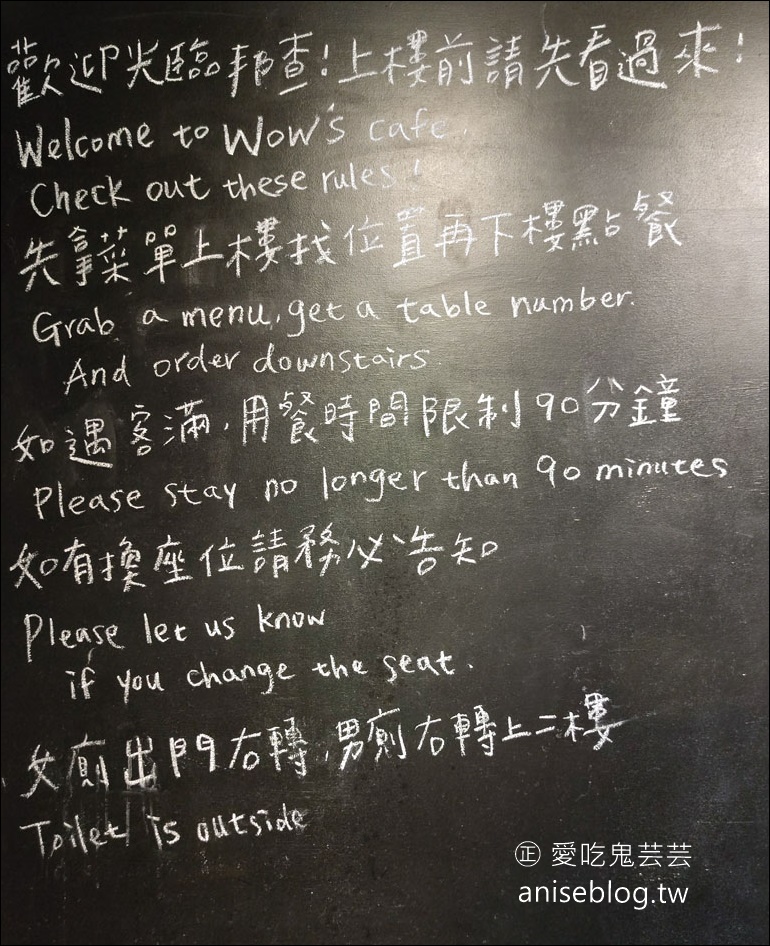 歡迎光臨邦查!上樓前請先看過來!
Welcome to Wow's cafe.
Check out these rules!
先拿菜單上樓找位置再下樓點餐
Grab a menu, get a table number.
And order downstairs.
如遇客滿,用餐時間限制90分鐘
Please stay no longer than 90 minutes
如有換座位請務必告知
Please let us know
if you change the seat.
女廁出門右轉,男廁右轉上二樓
Toilet is outside
㊣ 愛吃鬼芸芸
aniseblog.tw